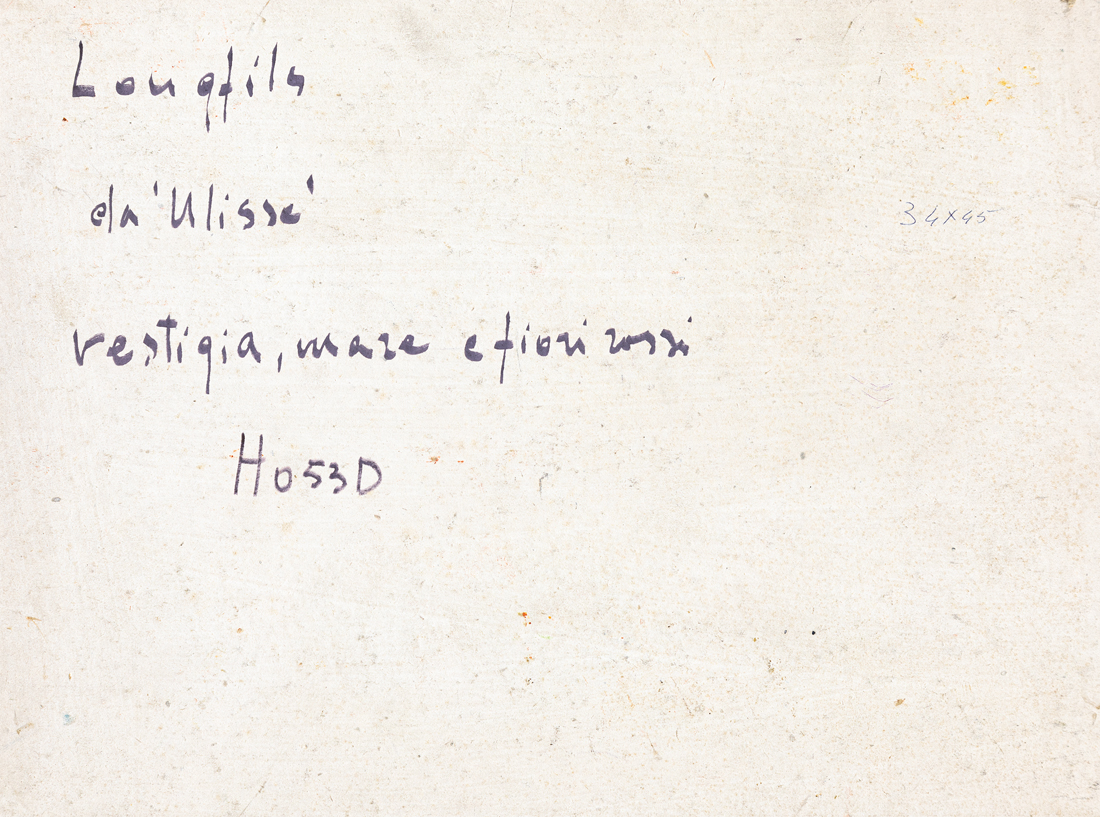 Longfils
da 'Ulisse'
34x45
vestigia, mare e fiori rossi
H053D